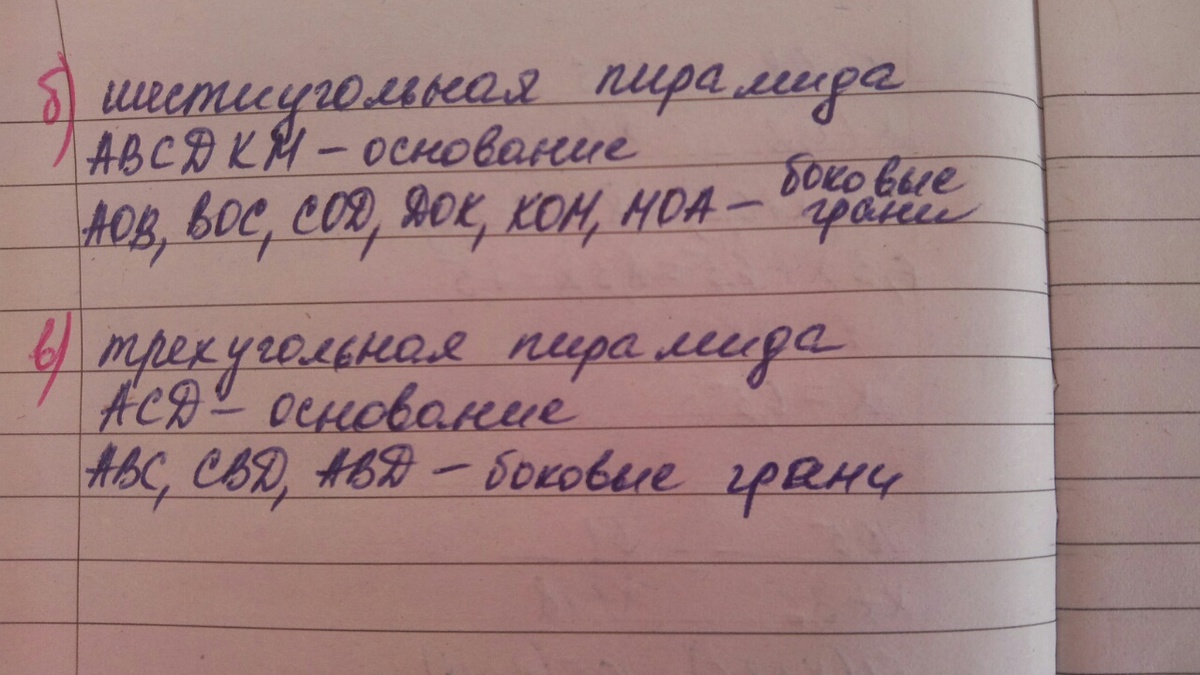 б) шестиугольная пирамида
ABCDKM – основание
AOB, BOC, COD, DOK, KOM, MOA – боковые грани
в) трехугольная пирамида
ACD – основание
ABC, CBD, ABD – боковые грани